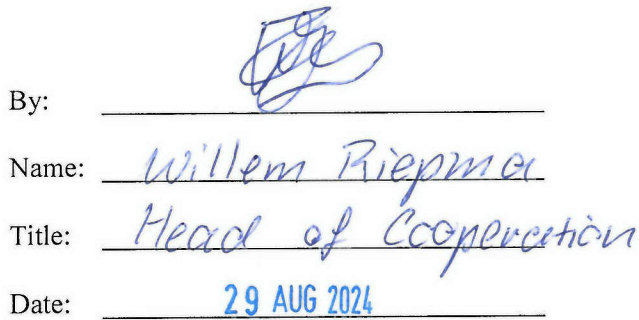 By:
Name: Willem Riepma
Title: Head of Cooperation
Date: 29 AUG 2024